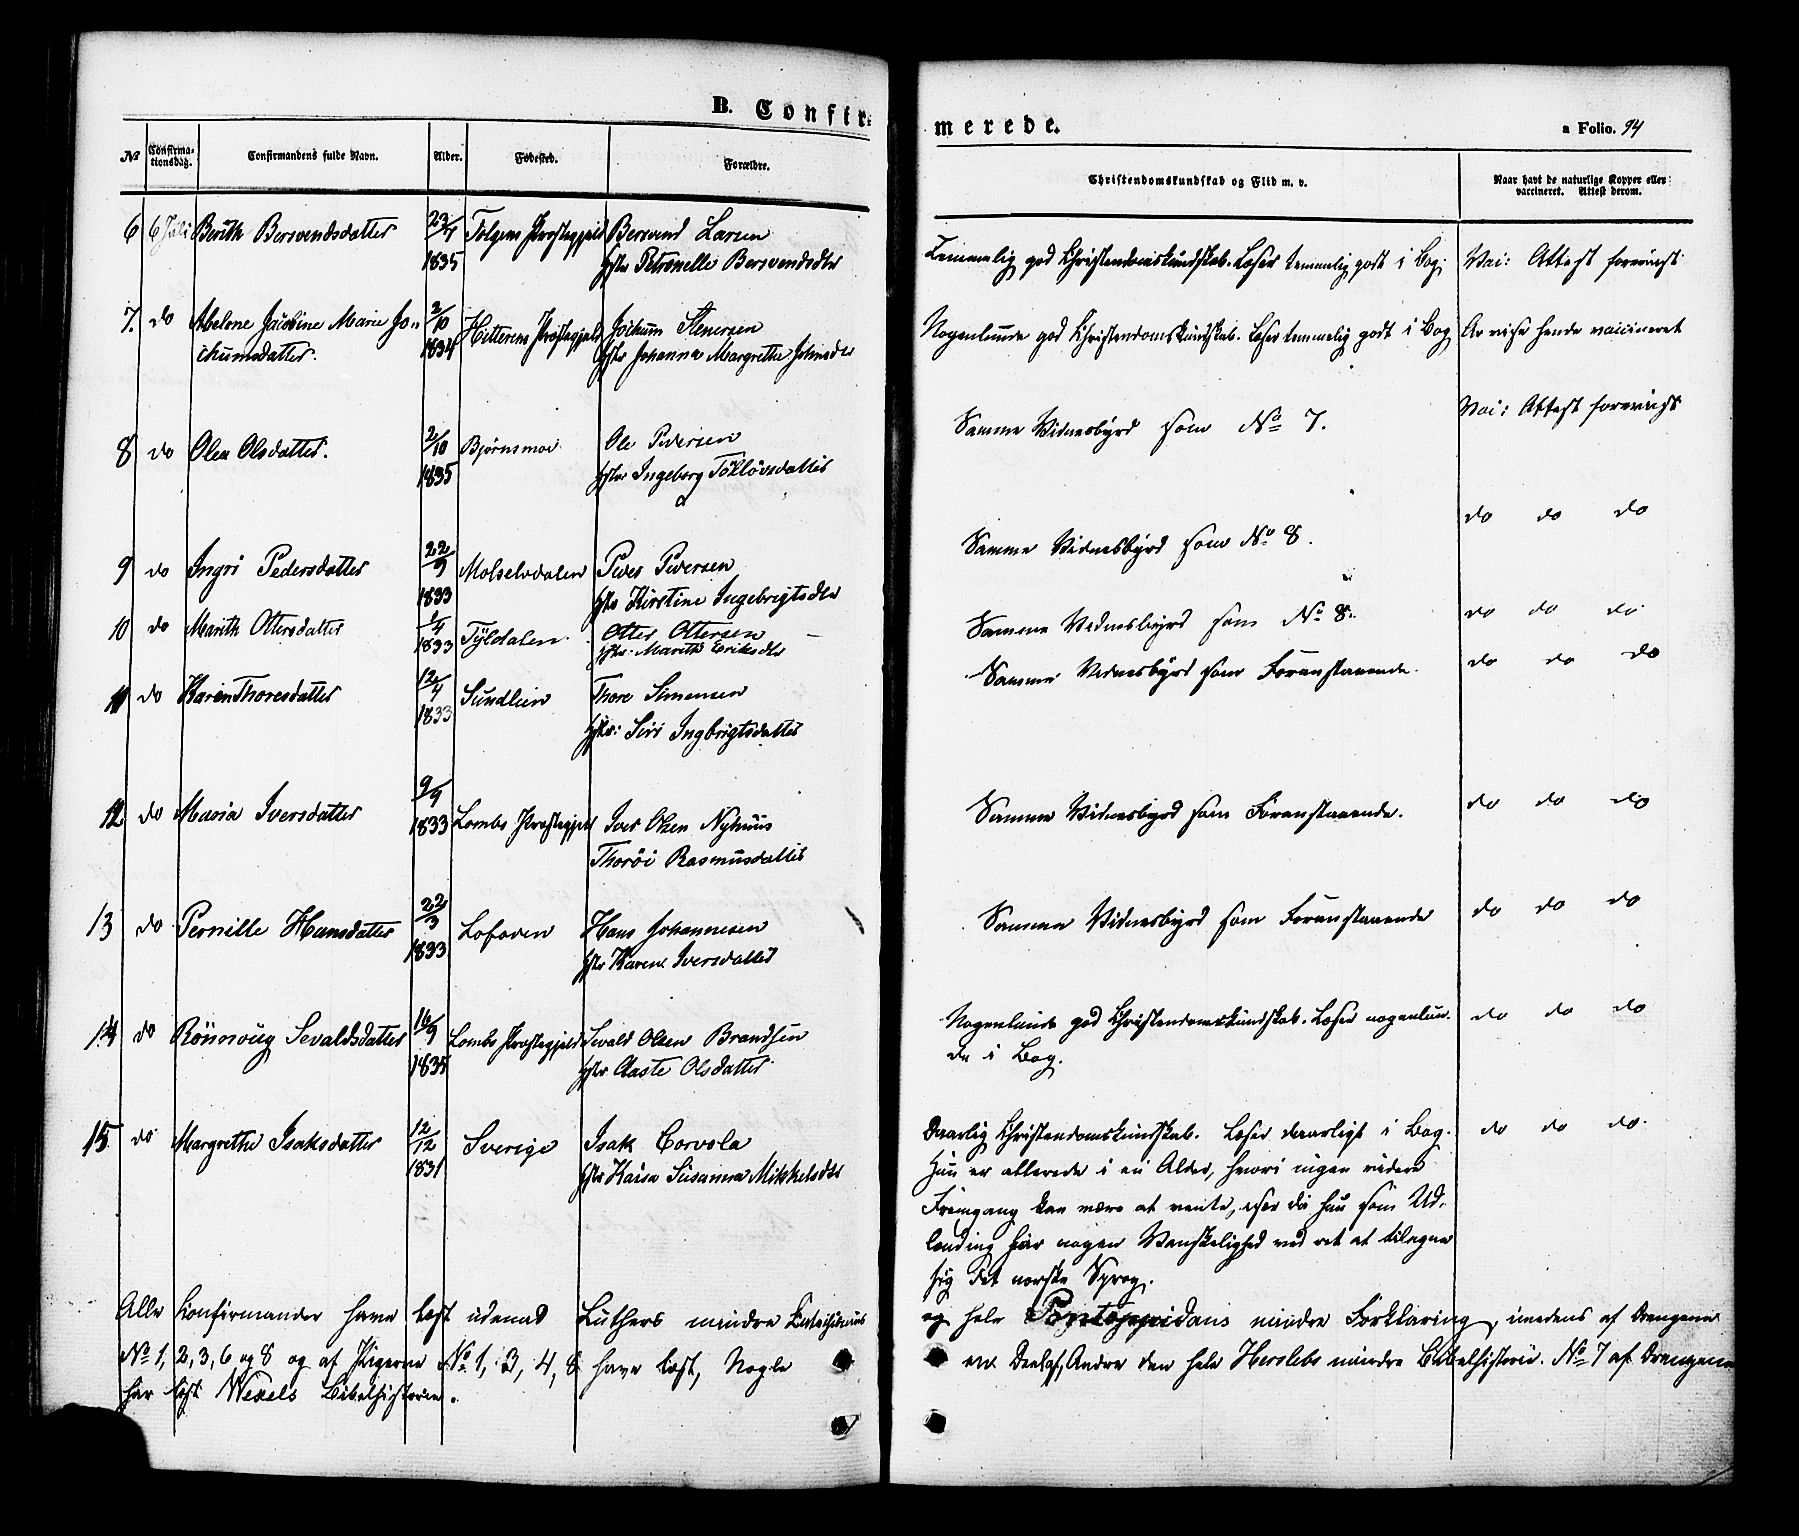 B. Confirmerede.
a Folio. 94
№
Confirmationsdag.
Confirmandens fulde Navn.
Alder.
Fødested.
Forældre.
Christendomskundskab og Flid m. v.
Naar havt de naturlige Kopper eller vaccineret. Attest derom.
6 6 Juli Berith Bersvendsdatter 23/7 1835 Tolgens Præstegjeld Bersvend Larsen
Petronelle Bersvendsdtr
Temmelig god Christendomskundskab. Læser temmelig godt i Bog. Vac: Attest foreviist
7. do Abelone Jacobine Marie Jo-
chumsdatter. 2/10 1834 Hitterens Præstegjeld Jochum Stenersen
Johanna Margrethe
Nogenlunde god Christendomskundskab. Læser temmelig godt i Bog hende vaccineret
8 do Olea Olsdatter. 2/10 1835 Bjørnsmoe Ole Pedersen
Ingeborg
Samme Vidnesbyrd som No 7. Vac: Attest foreviist
9 do Ingri Pedersdatter 22/9 1833 Molselvdalen Peder Pedersen
Kirstine Ingebrigtsdtr
Samme Vidnesbyrd som No 8. do do do
10 do Marith Ottersdatter 1/4 1833 Tyldalen Otter Ottersen
Marith Eriksdtr
Samme Vidnesbyrd som No 8. do do do
11 do Karen Thoresdatter 12/4 1833 Sundlien Thore Simensen
Siri Ingbrigtsdatter
Samme Vidnesbyrd som Foranstaaende. do do do
12 do Maria Iversdatter 9/9 1833 Lombs Præstegjeld Iver Olsen Nyhuus
Thorøi Rasmusdatter
Samme Vidnesbyrd som Foranstaaende. do do do
13 do Pernille Hansdatter 22/3 1833 Lofoden Hans Johannesen
Karen Iversdatter
Samme Vidnesbyrd som Foranstaaende do do do
14 do Rönnoug Sevaldsdatter 16/9 1835 Lombs Præstegjeld Sevald Olsen Brandsen
Aaste Olsdatter
Nogenlunde god Christendomskundskab. Læser nogenlun-
de i Bog. do do do
15 do Margrethe Isaksdatter 12/12 1831 Sverige Isak Corvola
Kaisa Susanna Mikkelsdtr
Daarlig Christendomskundskab. Læser daarligt i Bog. do do do
Hun er allerede i en Alder, hvori ingen videre
Fremgang kan være at vente, især da hun som Ud-
lænding har nogen Vanskelighed ved ret at tilegne
sig det norske Sprog.
Alle Confirmander have læst udenad Luthers mindre Catechismus og hele Pontoppidans mindre Forklaring, imedens af Drengene
No 1, 2, 3, 6 og 8 og af Pigerne No 1, 3, 4, 8 have læst, Nogle en Deel af, Andre den hele Herslebs mindre Bibelhistorie. No 7 af Drengene
har læst Wexels Bibelhistorie.